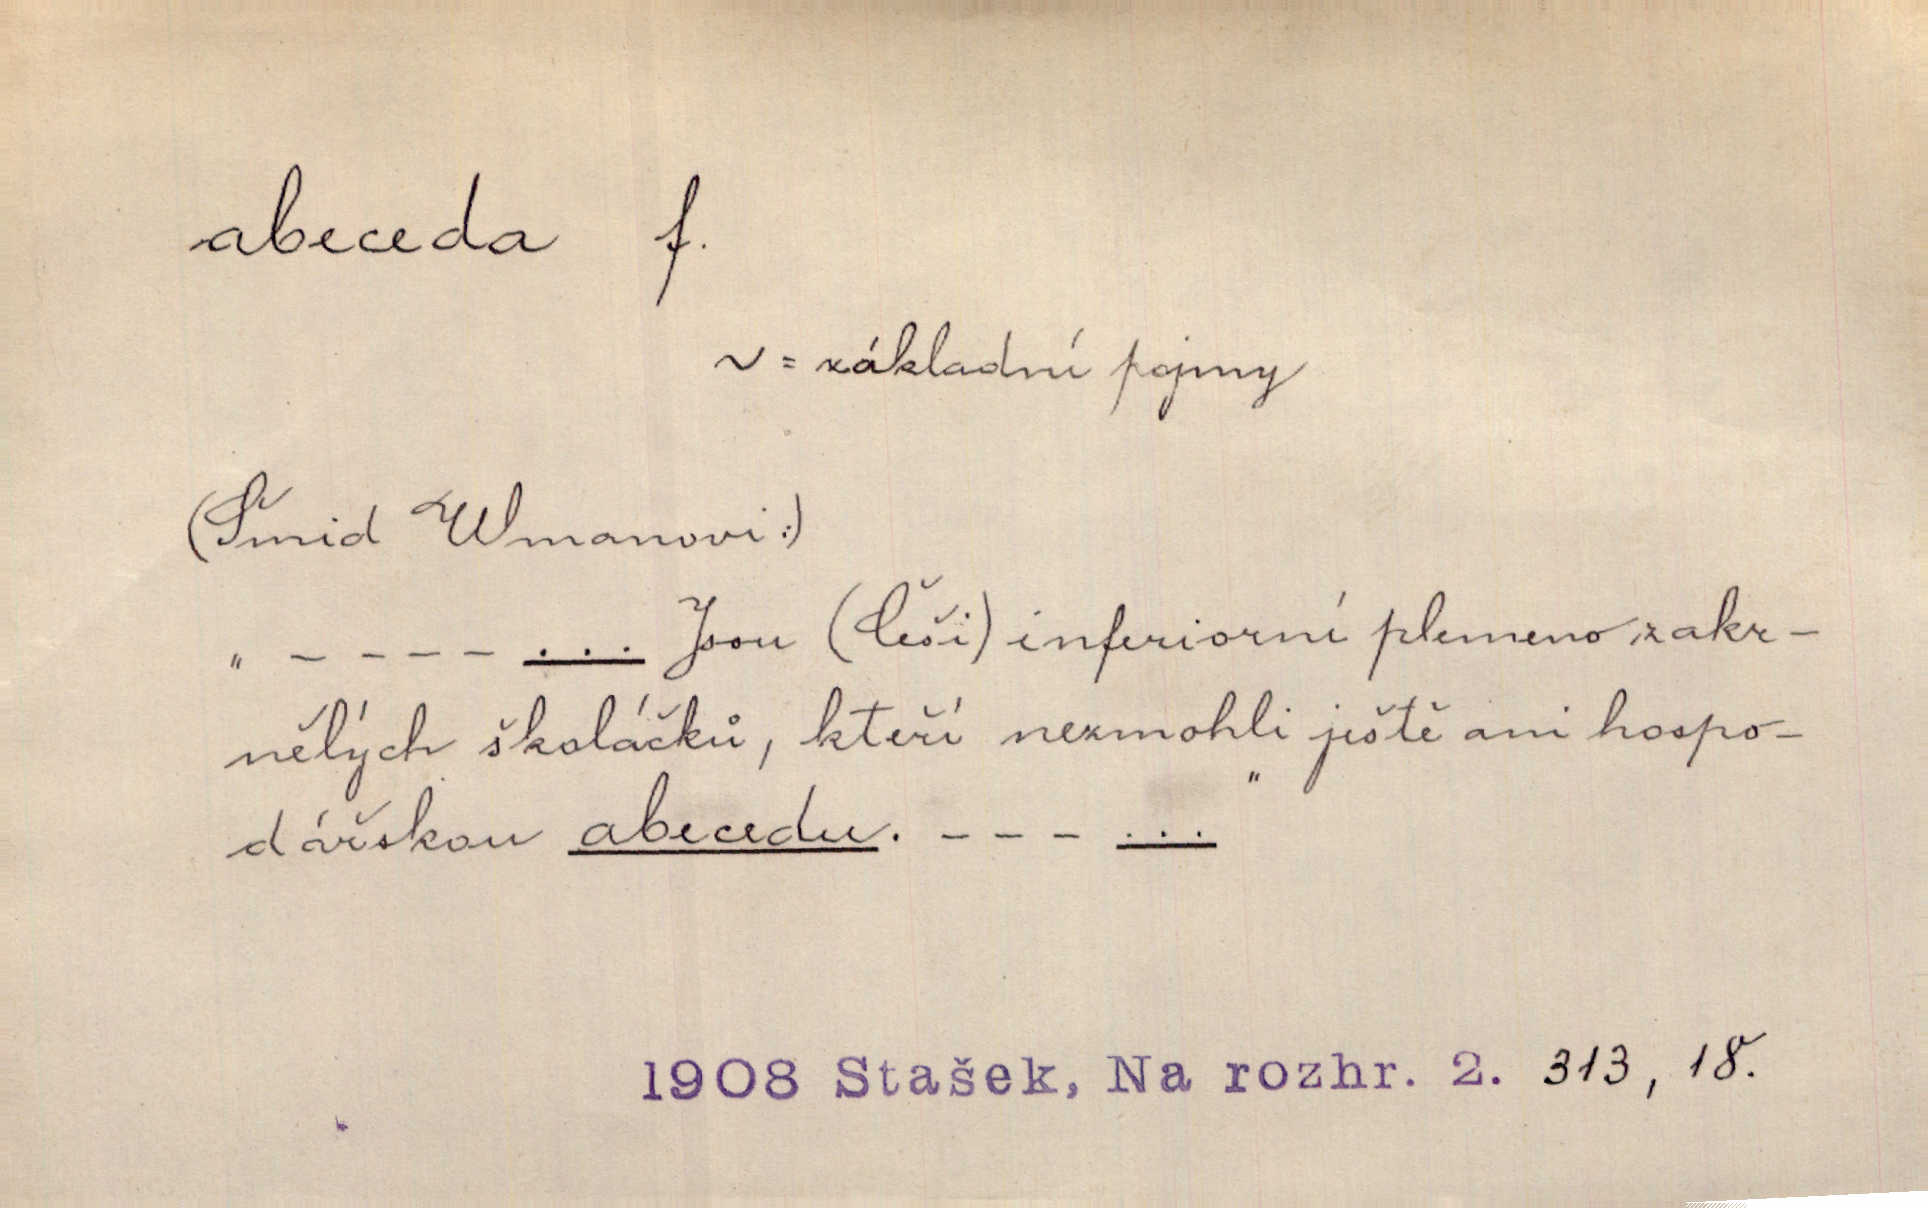 abeceda f.
~ = základní pojmy
(Šmid Ulmanovi:)
„ – – – – . . . Jsou (Češi) inferiorní plemeno zakr-
nělých školáčků, kteří nezmohli ještě ani hospo-
dářskou abecedu. – – – . . . "
1908 Stašek, Na rozhr. 2. 313, 18.